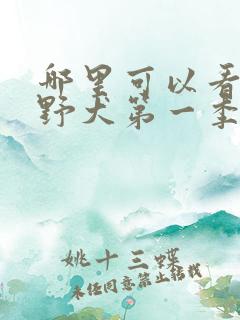 哪里可以看
野犬第一季
姚十三蝶
未经同意禁止转载